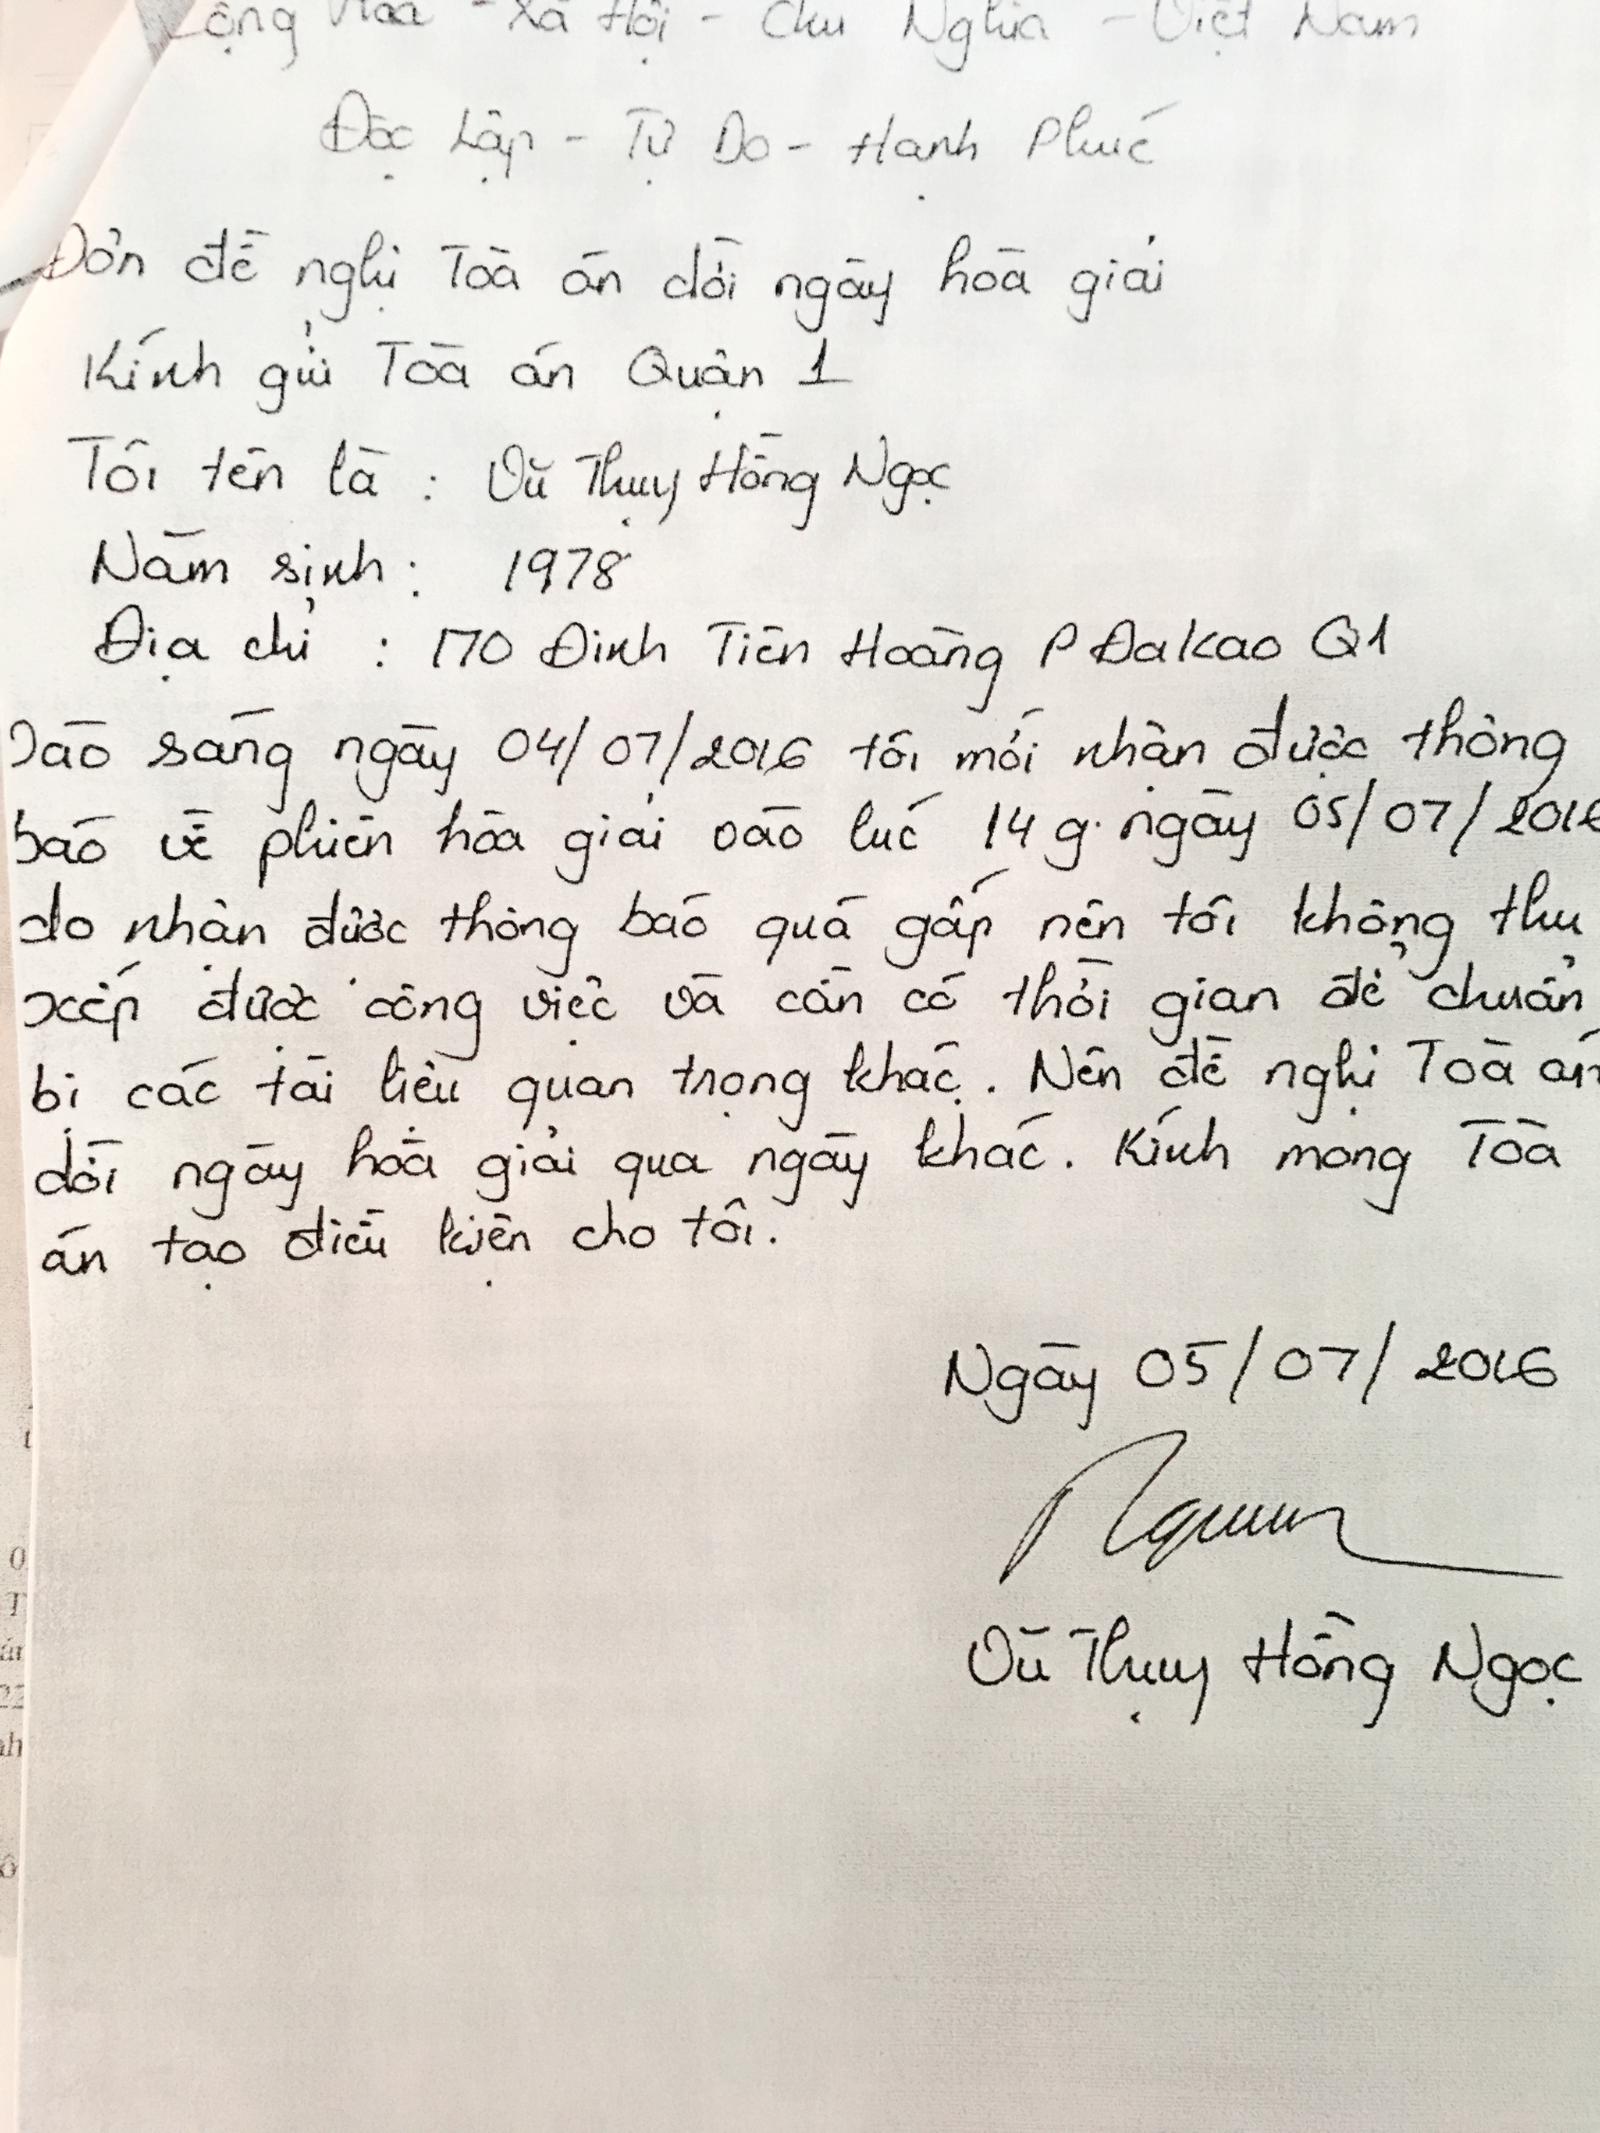 Cộng Hòa - Xã Hội - Chủ Nghĩa - Việt Nam
Độc Lập - Tự Do - Hạnh Phúc
Đơn đề nghị Toà án dời ngày hòa giải
Kính gửi Toà án Quận 1
Tôi tên là : Vũ Thụy Hồng Ngọc
Năm sinh : 1978
Địa chỉ : 170 Đinh Tiên Hoàng P Đakao Q1
Vào sáng ngày 04/07/2016 tôi mới nhận được thông
báo về phiên hòa giải vào lúc 14 g. ngày 05/07/2016
do nhận được thông báo quá gấp nên tôi không thu
xếp được công việc và cần có thời gian để chuẩn
bị các tài liệu quan trọng khác. Nên đề nghị Toà án
dời ngày hòa giải qua ngày khác. Kính mong Toà
án tạo điều kiện cho tôi.
Ngày 05/07/2016
Vũ Thụy Hồng Ngọc